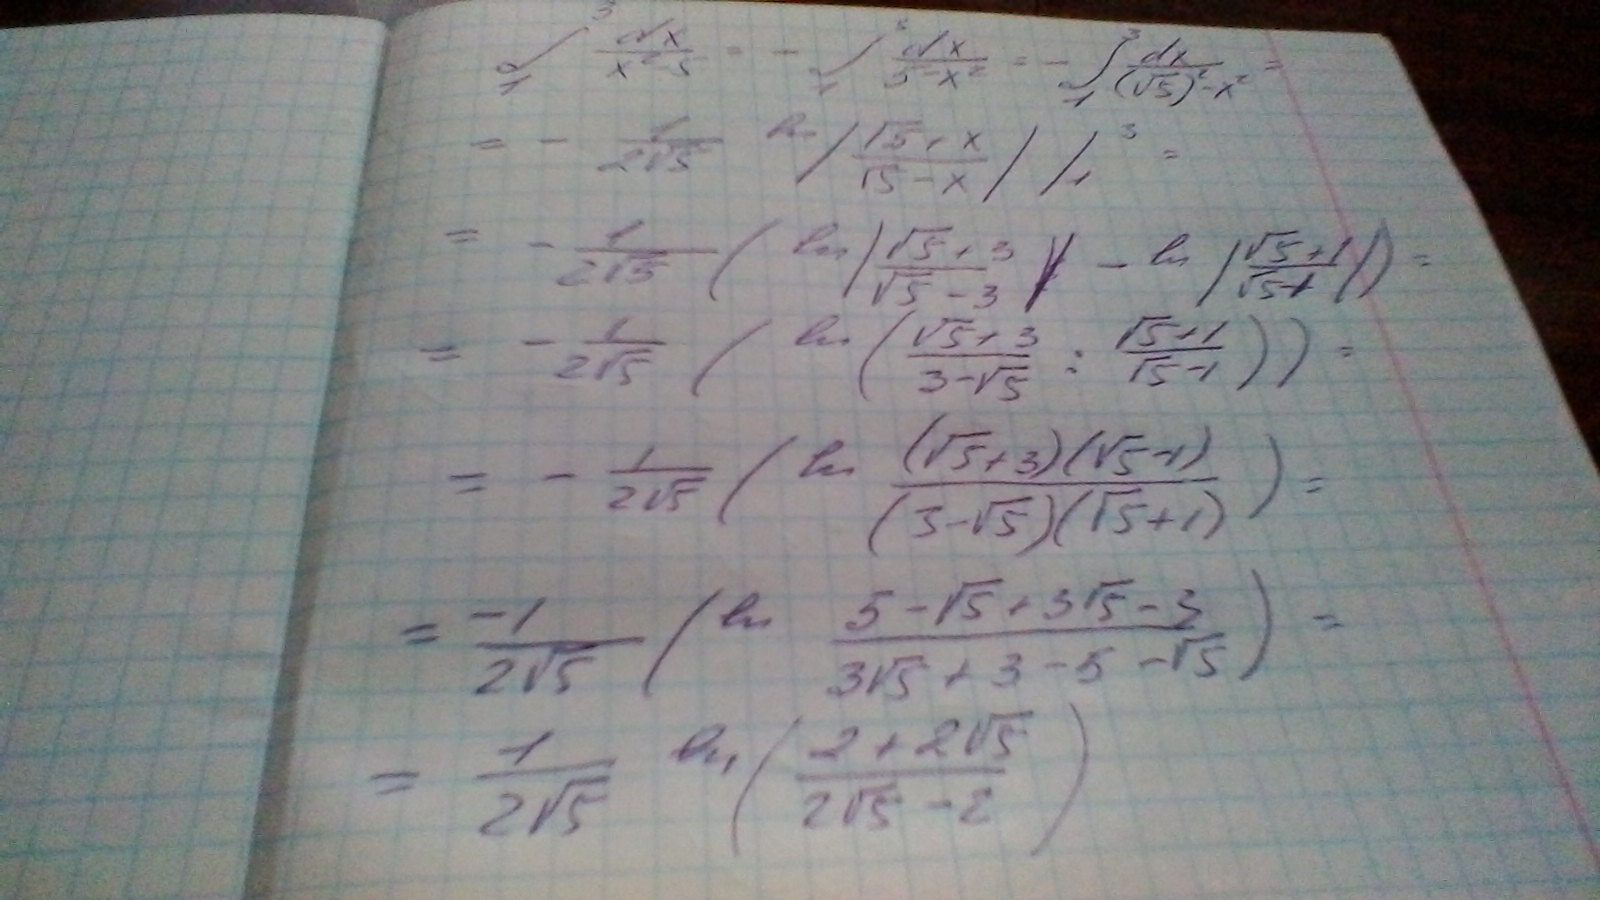 ∫₁³ dx/(x²-5) = - ∫₁³ dx/(5-x²) = - ∫₁³ dx/((√5)²-x²) =
= - 1/(2√5) ln |(√5+x)/(√5-x)| |₁³ =
= - 1/(2√5) ( ln |(√5+3)/(√5-3)| - ln |(√5+1)/(√5-1)| ) =
= - 1/(2√5) ( ln ( (√5+3)/(3-√5) : (√5+1)/(√5-1) ) ) =
= - 1/(2√5) ( ln ((√5+3)(√5-1))/((3-√5)(√5+1)) ) =
= -1/(2√5) ( ln (5-√5+3√5-3)/(3√5+3-5-√5) ) =
= 1/(2√5) ln ( (2+2√5)/(2√5-2) )